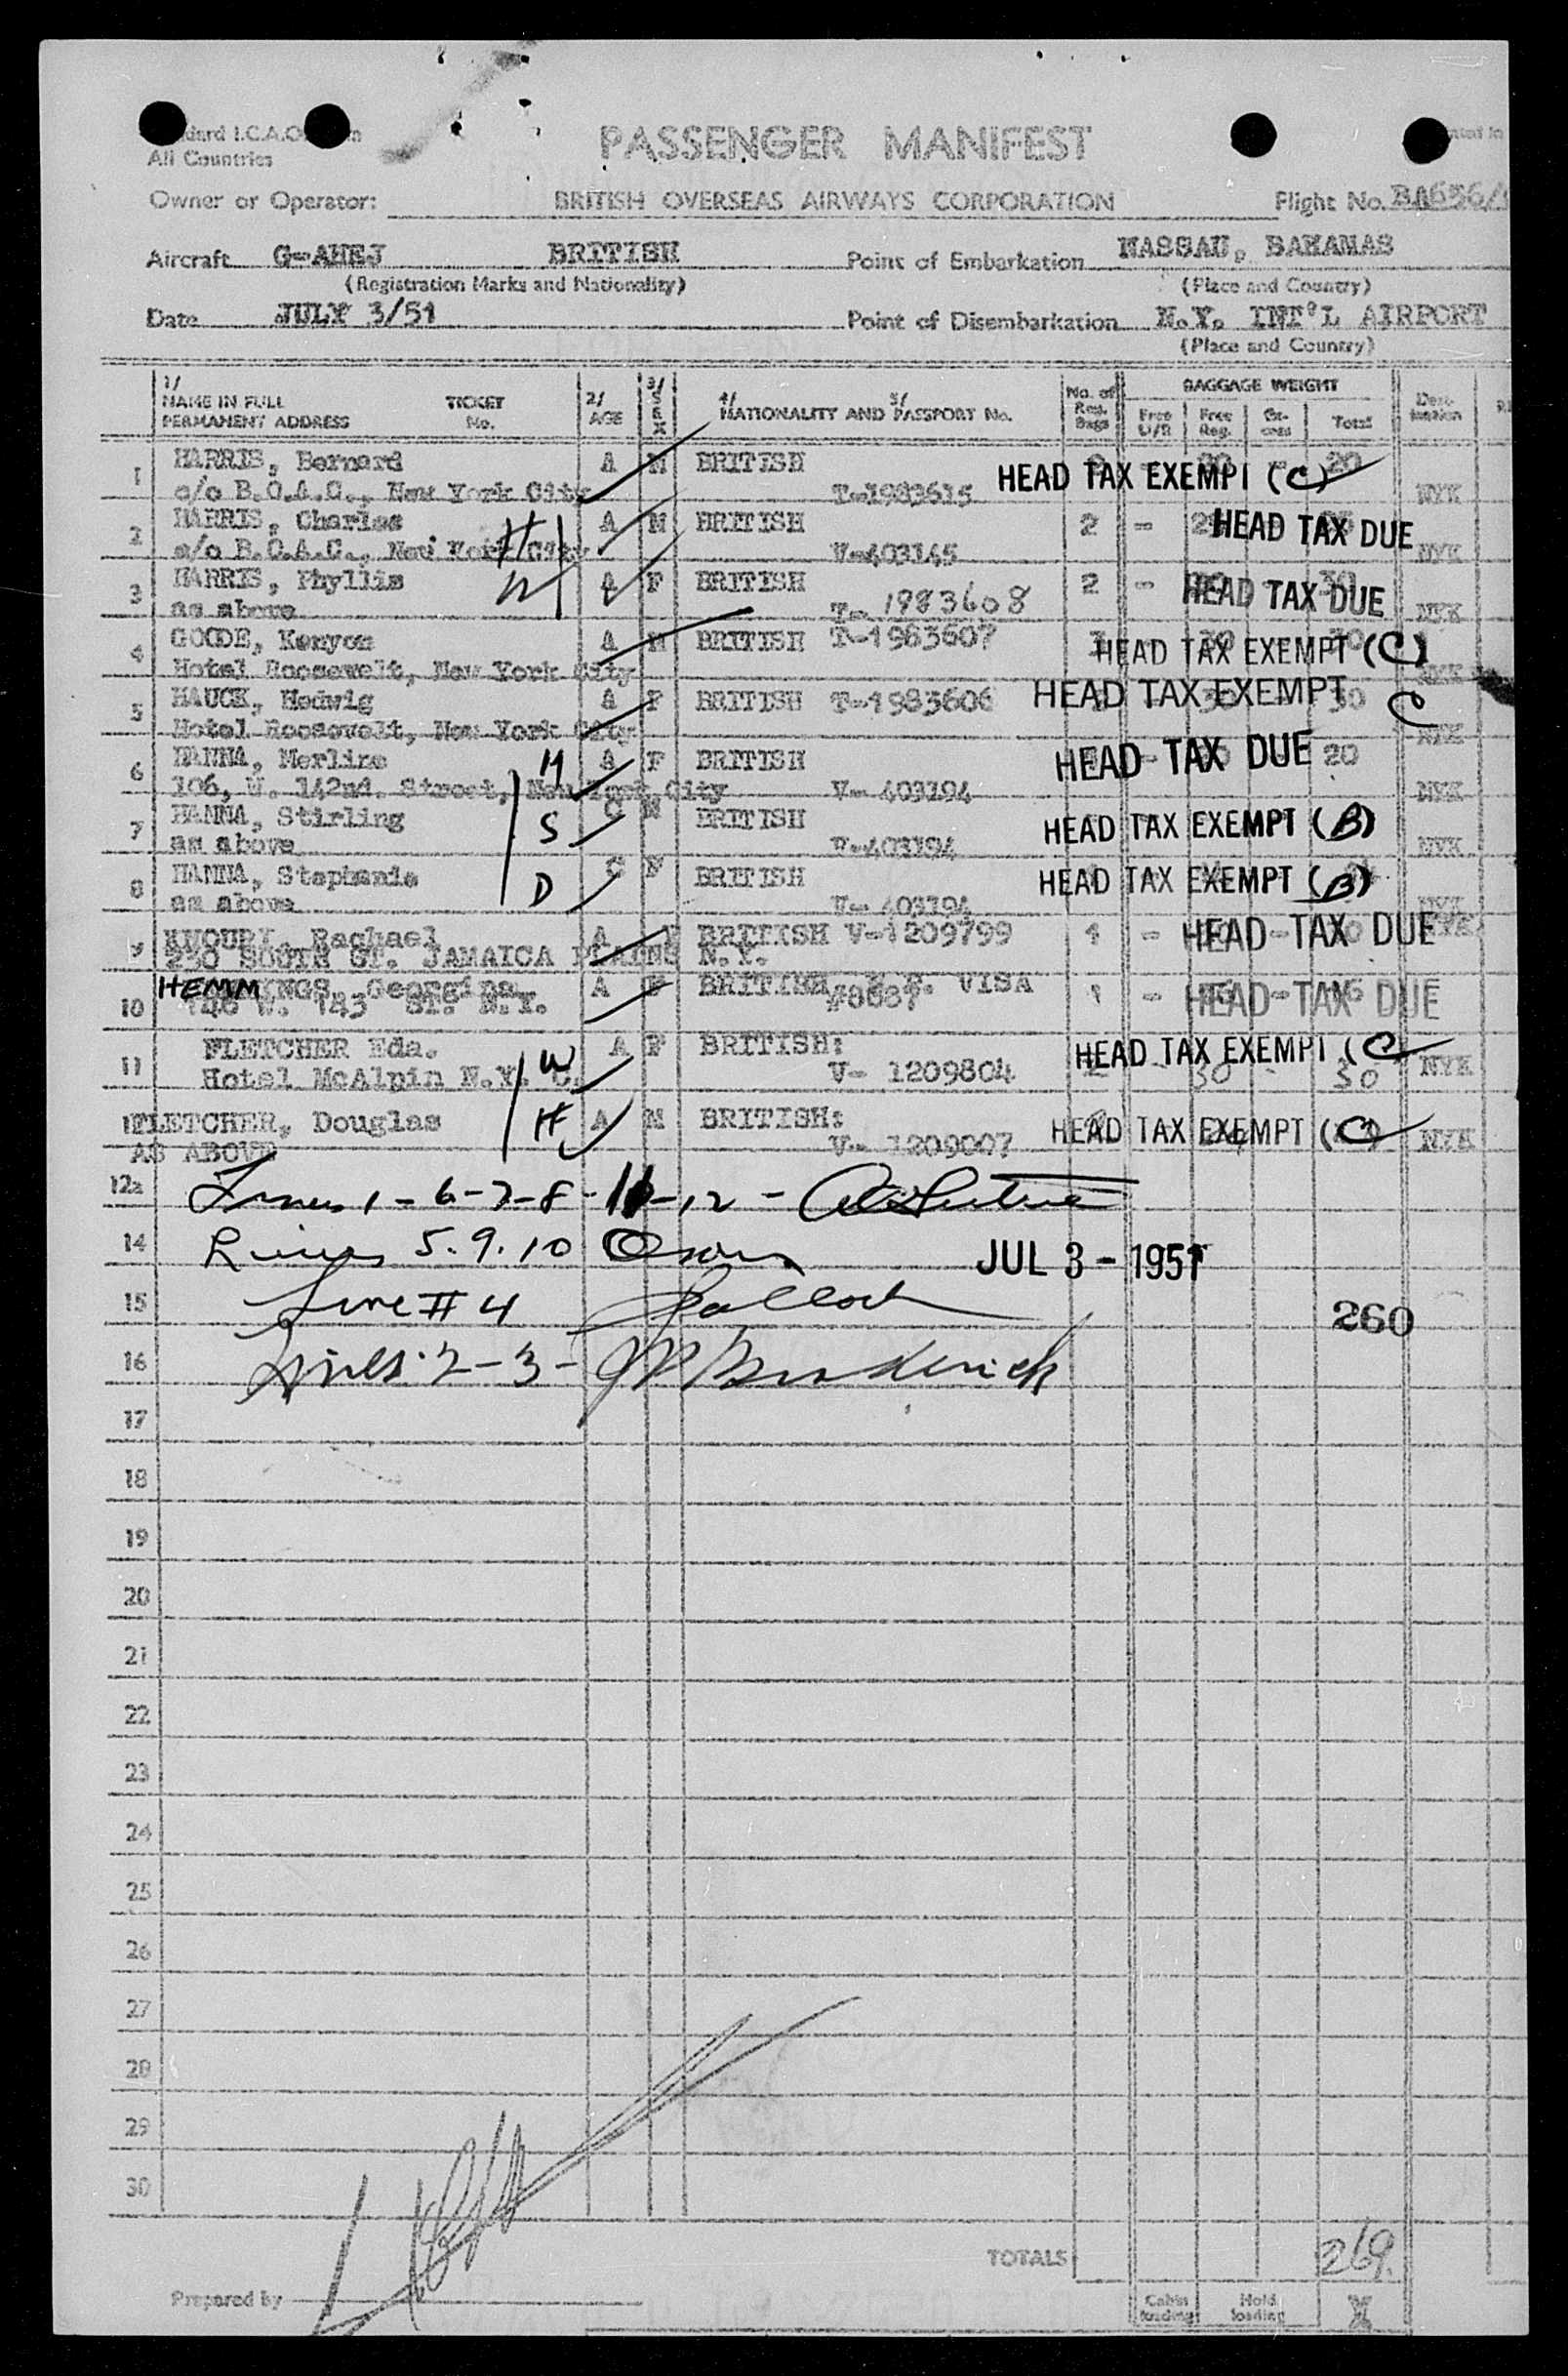 All Countries
PASSENGER MANIFEST
Owner or Operator: BRITISH OVERSEAS AIRWAYS CORPORATION Flight No. BA656/
Aircraft G-AHEJ BRITISH Point of Embarkation NASSAU, BAHAMAS
(Registration Marks and Nationality) (Place and Country)
Date JULY 3/51 Point of Disembarkation N.Y. INT'L AIRPORT
(Place and Country)
1/ NAME IN FULL PERMANENT ADDRESS TICKET No. 2/ AGE 3/ SEX 4/ NATIONALITY AND 5/ PASSPORT No. No. of Reg. Bags BAGGAGE WEIGHT Free U/R Free Reg. Ex-cess Total Dest-ination
1 HARRIS, Bernard A M BRITISH 20
c/o B.O.A.C., New York City T-1983615 HEAD TAX EXEMPT (C) NYK
2 HARRIS, Charles H A M BRITISH 2 - HEAD TAX DUE
c/o B.O.A.C., New York City V-403145 NYK
3 HARRIS, Phyllis W A F BRITISH 2 - HEAD TAX DUE
as above T-1983608 NYK
4 GOODE, Kenyon A M BRITISH T-1983607 HEAD TAX EXEMPT (C)
Hotel Roosevelt, New York City NYK
5 HAUCK, Hedwig A F BRITISH T-1983606 HEAD TAX EXEMPT C 30
Hotel Roosevelt, New York City NYK
6 HANNA, Merline M A F BRITISH HEAD TAX DUE 20
106, W. 142nd. Street, New York City V-403194 NYK
7 HANNA, Stirling S C M BRITISH HEAD TAX EXEMPT (B)
as above V-403194 NYK
8 HANNA, Stephanie D C F BRITISH HEAD TAX EXEMPT (B)
as above V-403194 NYK
9 KHOURY, Rachael A F BRITISH V-1209799 1 - HEAD TAX DUE NYK
250 SOUTH ST. JAMAICA PLAINS N.Y.
10 HEMMINGS, Georgina A F BRITISH U.S. VISA 1 - HEAD TAX DUE
146 W. 143 St. N.Y.
11 FLETCHER Eda. W A F BRITISH: HEAD TAX EXEMPT (C) NYK
Hotel McAlpin N.Y. C. V- 1209804 30 30
12 FLETCHER, Douglas H A M BRITISH: HEAD TAX EXEMPT (C) NYK
AS ABOVE V- 1209007
12a Lines 1-6-7-8-11-12 -
14 Lines 5.9.10 JUL 3 - 1951
15 Line # 4 260
16 Lines 2-3-
17
18
19
20
21
22
23
24
25
26
27
28
29
30
TOTALS 269.
Prepared by Cabin loading Hold loading